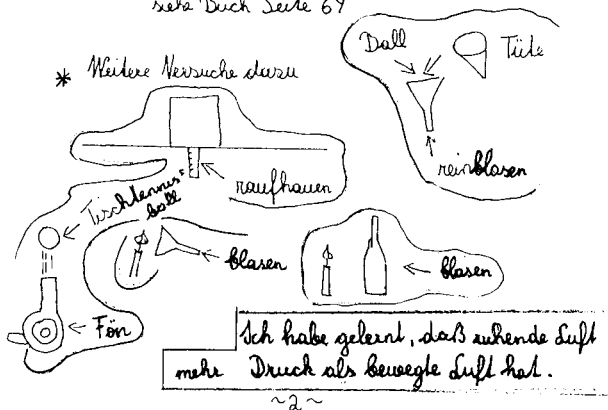 siehe Buch Seite 64
* Weitere Versuche dazu
Ball
Tüte
reinblasen
raufhauen
Tischtennis=
ball
blasen
blasen
Fön
Ich habe gelernt, daß ruhende Luft
mehr Druck als bewegte Luft hat.
~2~